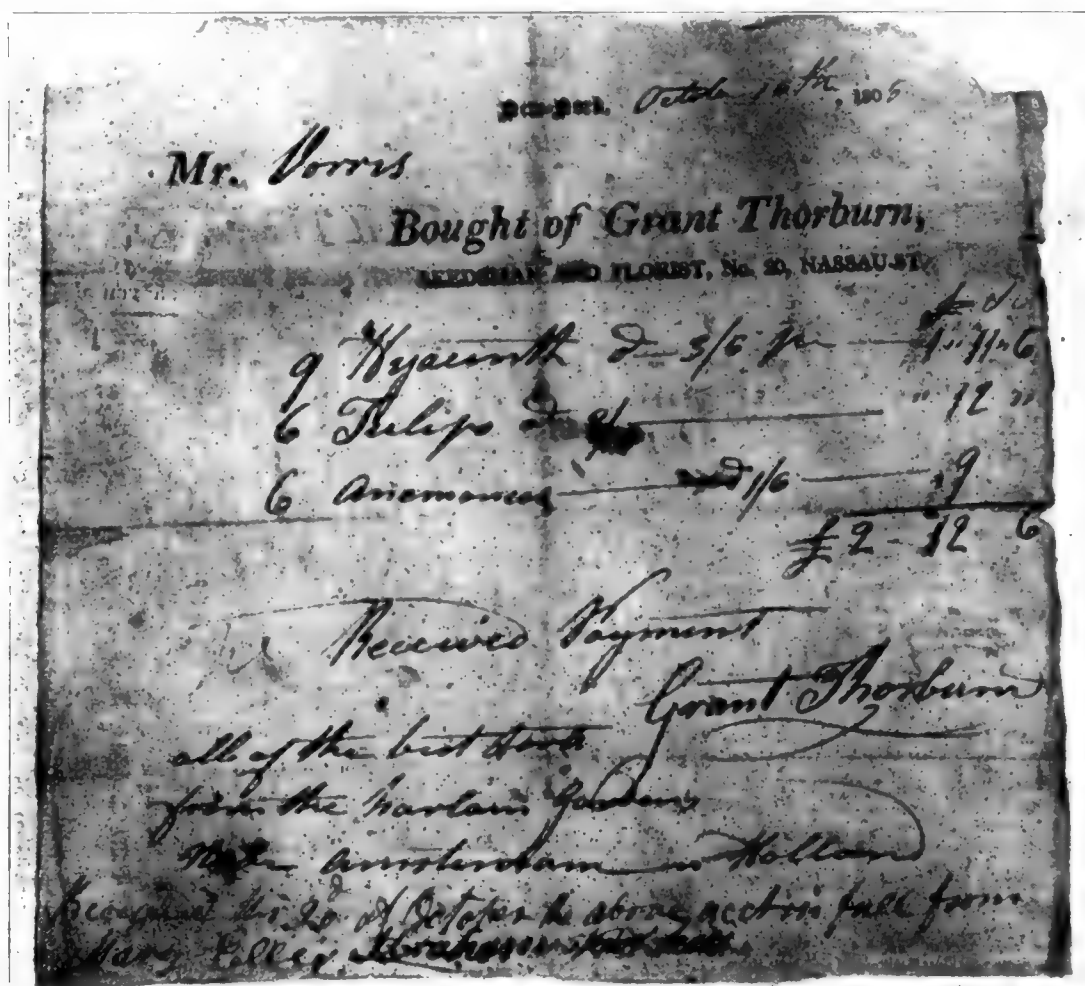 New-York, October th, 1805
Mr. Vorris
Bought of Grant Thorburn,
SEEDSMAN AND FLORIST, No. 20, NASSAU-ST.
9 Hyacinth @ 3/6 1 " 11 " 6
6 Tulips @ " 12 "
6 Anemones 1/6 9
£ 2 - 12 6
Received Payment
Grant Thorburn
all of the best
from the harlaim Gardens
Amsterdam in Holland
Received 20 of October the above acct in full from
Mary Ellis